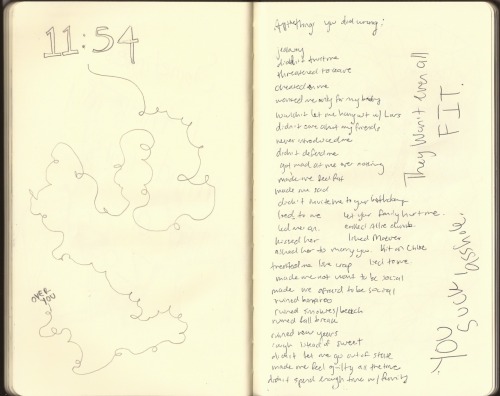 11:54
OVER
YOU
things you did wrong:
jealousy
didn't trust me
threatened to leave
cheated on me
wanted me only for my body
wouldn't let me hang out w/
didn't care about my friends
never introduced me
didn't defend me
got mad at me over nothing
made me feel fat
made me sad
didn't invite me to your birthday
lied to me let your family hurt me.
led me on.
kissed her liked
asked her to marry you. hit on Chloe
treated me like crap lied to me.
made me not want to be social
made me afraid to be social
ruined
ruined smokies/beach
ruined fall break
ruined new years
didn't let me go out of state
made me feel guilty all the time
didn't spend enough time w/ family
They Won't even all
FIT.
YOU
Suck asshole.